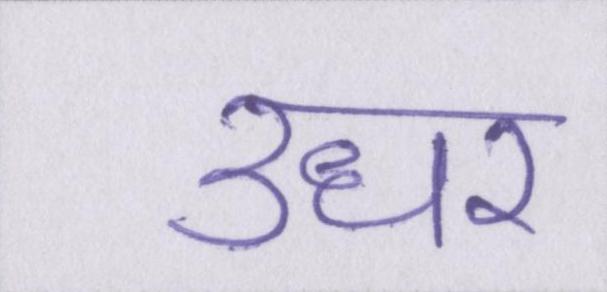 उधर